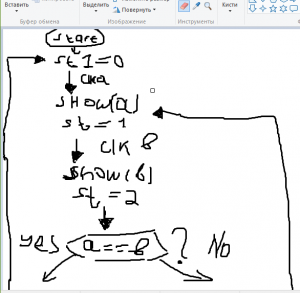 Вставить
Выделить
Повернуть
Кисти
Буфер обмена
Изображение
Инструменты
start
st1=0
show(a)
st=1
clk b
show(b)
st=2
yes a==b ? No